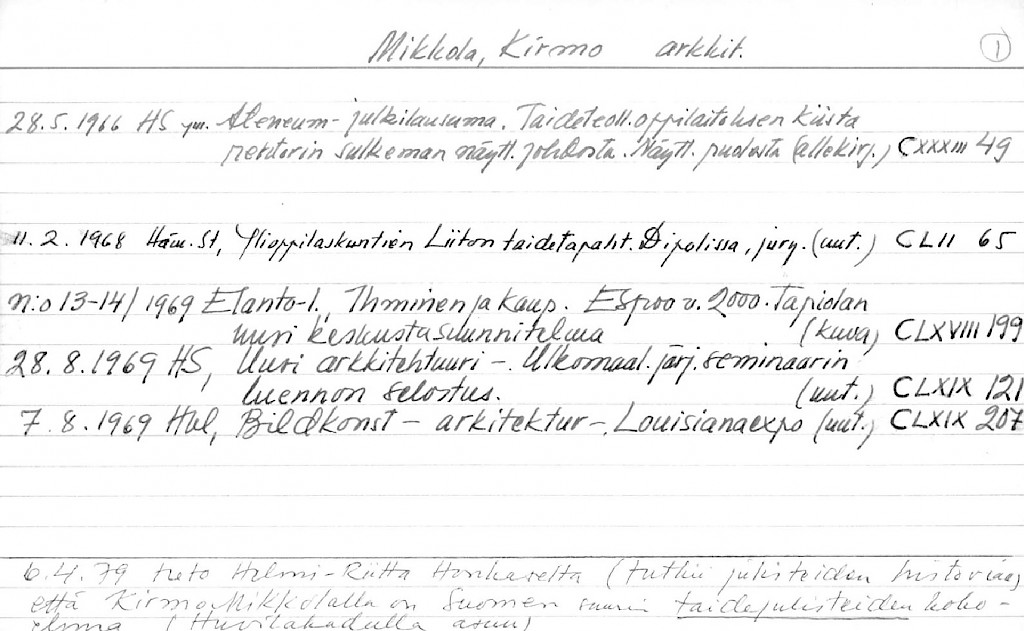 Mikkola, Kirmo arkkit. 1
28.5.1966 HS ym. Ateneum-julkilausuma. Taideteoll.oppilaitoksen kiista
rehtorin sulkeman näytt. johdosta. Näytt. puolesta (allekirj.) CXXXIII 49
11.2.1968 Häm.St, Ylioppilaskuntien Liiton taidetapaht. Dipolissa, jury. (uut.) CLII 65
n:o 13-14/1969 Elanto-l., Ihminen ja kaup. Espoo v. 2000. Tapiolan
uusi keskustasuunnitelma (kuva) CLXVIII 199
28.8.1969 HS, Uusi arkkitehtuuri -. Ulkomaal. järj. seminaarin
luennon selostus. (uut.) CLXIX 121
7.8.1969 Hbl, Bildkonst - arkitektur -. Louisianaexpo (uut.) CLXIX 207
6.4.79 tieto Helmi-Riitta Honkaselta (tutkii julisteiden historiaa)
että Kirmo Mikkolalla on Suomen suurin taidejulisteiden koko-
elma (Huvilakadulla asuu)